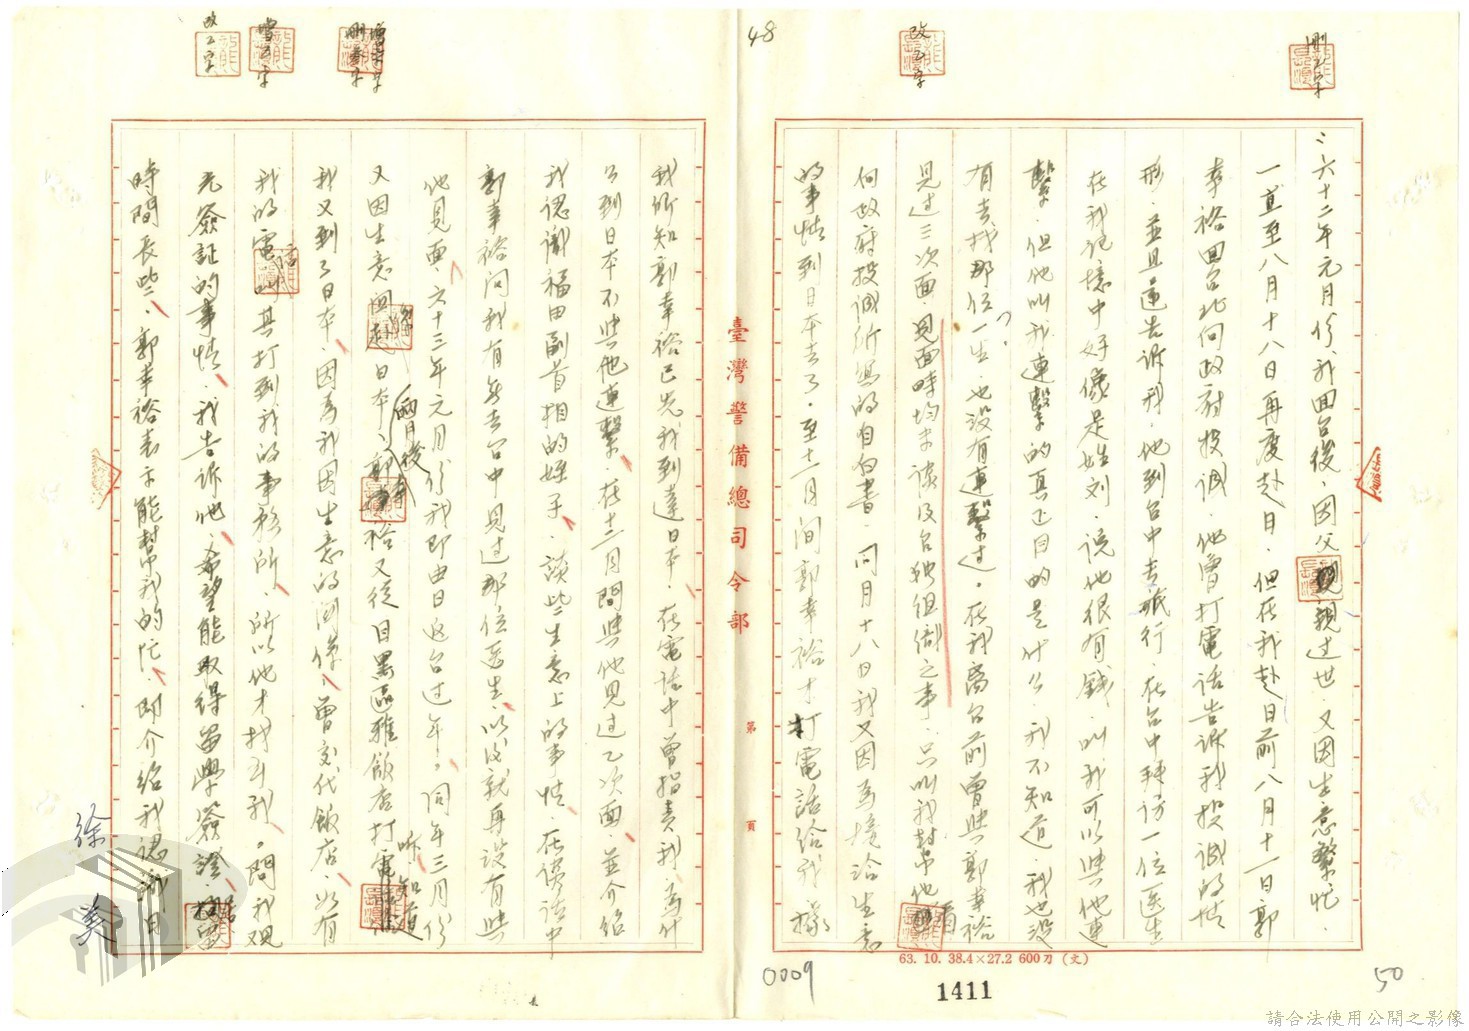 刪乙字
改乙字
48
增弍字
刪叁字
增乙字
改乙字
三、六十二年元月份,我回台後,因父親過世,又因生意繁忙,
一直至八月十八日再度赴日,但在我赴日前八月十一日郭
幸裕回台北向政府投誠,他曾打電話告訴我投誠的情
形,並且還告訴我,他到台中去旅行,在台中拜訪一位醫生
在我的記憶中好像是姓刘,說他很有錢,叫我可以與他連
繫,但他叫我連繫的真正目的是什么,我不知道,我也沒
有去找那位醫生,也沒有連繫過。在我离台前曾與郭幸裕
見過三次面,見面時均未談及台独組織之事,只叫我對帮他
向政府投誠所寫的自白書,同月十八日我又因為境洽生意
的事情到日本去了,至十一月间郭幸裕才打電話給我,據
臺灣警備總司令部
第 頁
我所知郭幸裕已先我到達日本,在電話中曾指責我,為什
么到日本不與他連繫,在十二月間與他見过乙次面,並介紹
我認識福田副首相的姪子,談些生意上的事情,在談話中
郭幸裕問我有無去台中見过那位医生,以後就再沒有與
他見面,六十三年元月份我即由日返台过年。同年三月份
又因生意関係赴日本,兩月後郭幸裕又從目黑區雅敘店打電話知道
我又到了日本,因為我因生意的関係,曾交代飯店,以有
我的電話叫其打到我的事務所,所以他才找到我。問我观
光簽証的事情,我告訴他,希望能取得留學簽證,拘留
時間長些,郭幸裕表示能幫我的忙,即介紹我認識日
徐美
63. 10. 38.4×27.2 600刀(文)
0009
1411
50
請合法使用公開之影像